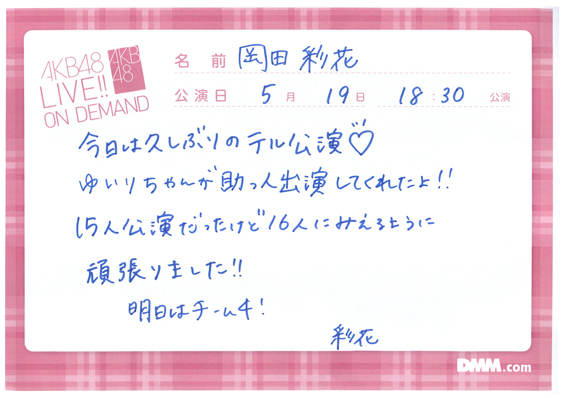 AKB48
LIVE!!
ON DEMAND
AKB
48
名 前 岡田 彩花
公演日 5月 19日 18:30 公演
今日は久しぶりのテル公演♡
ゆいりちゃんが助っ人出演してくれたよ!!
15人公演だったけど16人にみえるように
頑張りました!!
明日はチーム4!
彩花
DMM.com